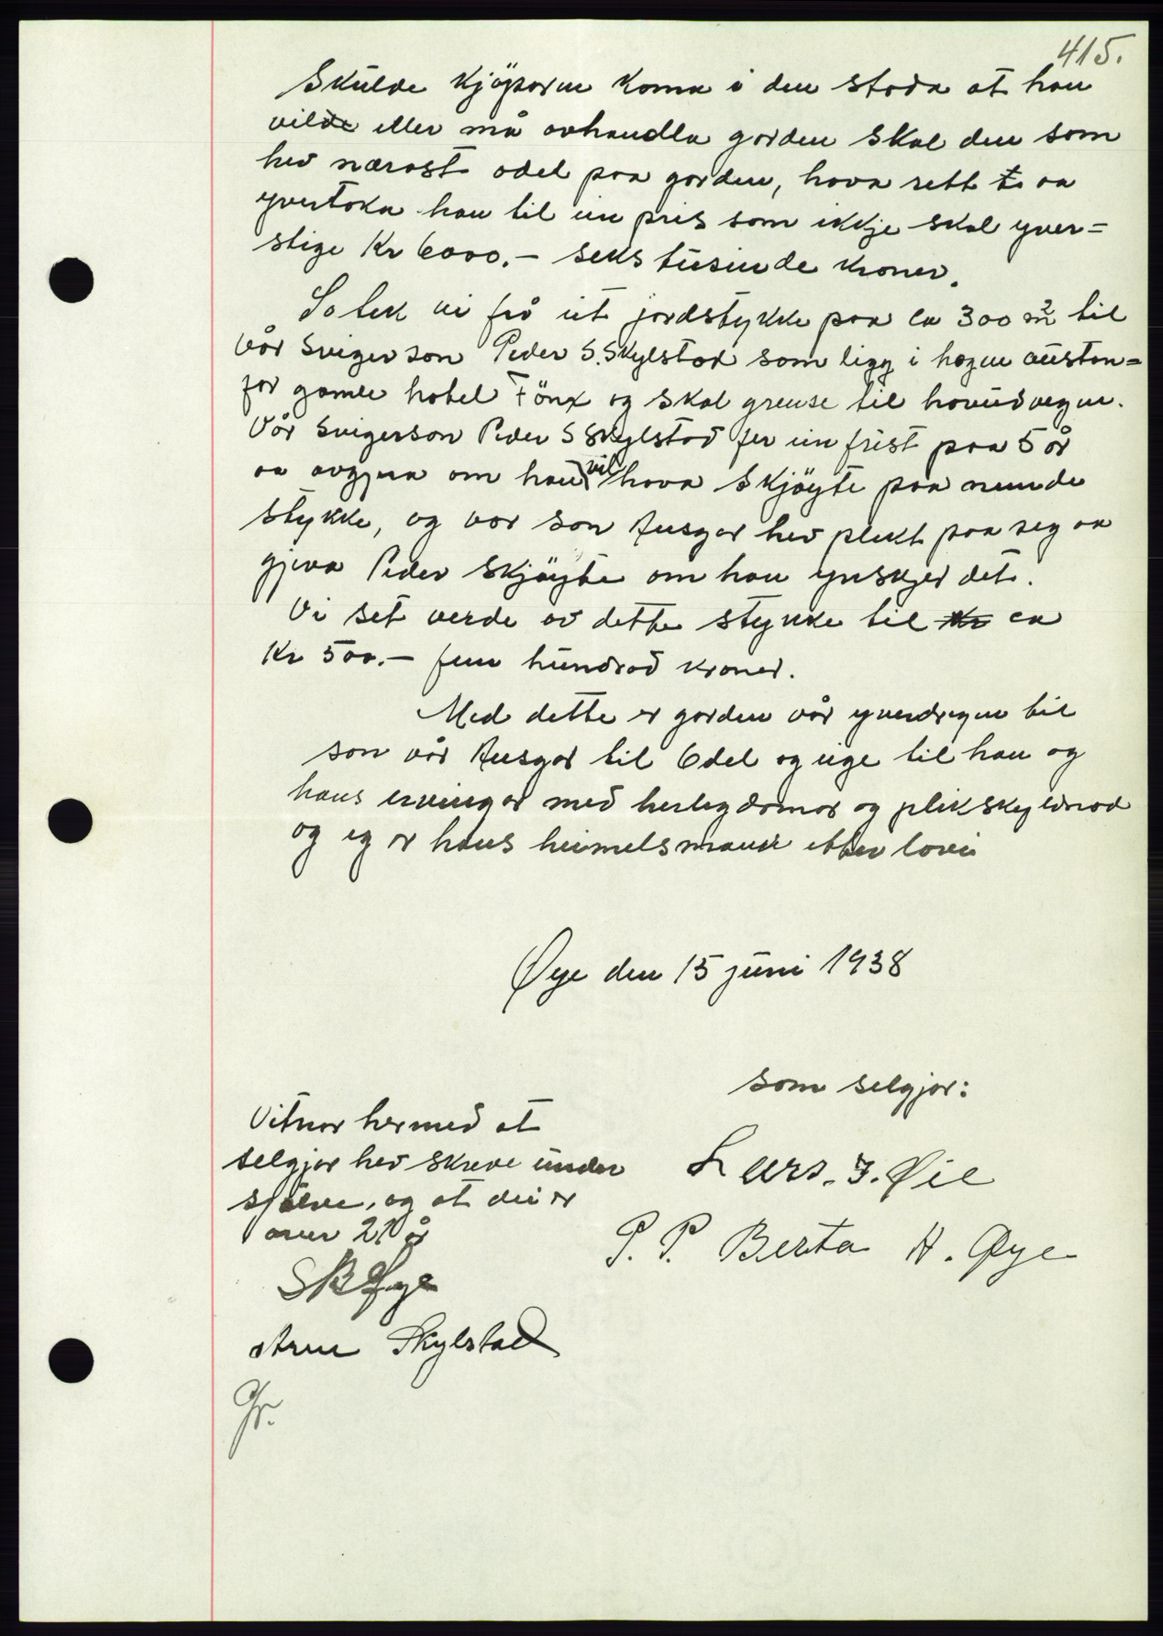 415.
Skulde kjøparen koma i den stoda at han
vilde eller må avhandla garden skal den som
hev nærast odel paa garden, hava rett t aa
yvertaka han til ein pris som ikkje skal yver=
stige Kr 6000.- sekstusinde kroner.
So tek vi frå eit jordstykke paa ca 300 m2 til
Vår svigerson Peder S. Skylstad som ligg i hagen austan=
for gamle hotel Fönx og skal grense til hovudvegen.
Vår svigerson Peder S Skylstad fer ein frist paa 5 år
aa avgjera om han vil hava skjøyte paa nemnde
stykke, og vår son Ansgar hev plikt paa seg aa
gjeva Peder skjøyte om han ynskjer det.
Vi set verde av dette stykke til Kr ca
Kr 500.- fem hundrad kroner.
Med dette er garden vår yverdregen til
son vår Ansgar til Odel og eige til han og
hans ervingar med herlegdomar og
og eg er hans heimelsmann etter lovi
Øye den 15 juni 1938
som seljar:
Vitnar hermed at
selgjar hev skreve under
sjølve, og at dei er
over 21 år
Lars. J. Øie
P. P. Berta H. Øye
S B Øye
Arne Skylstad
Gr.